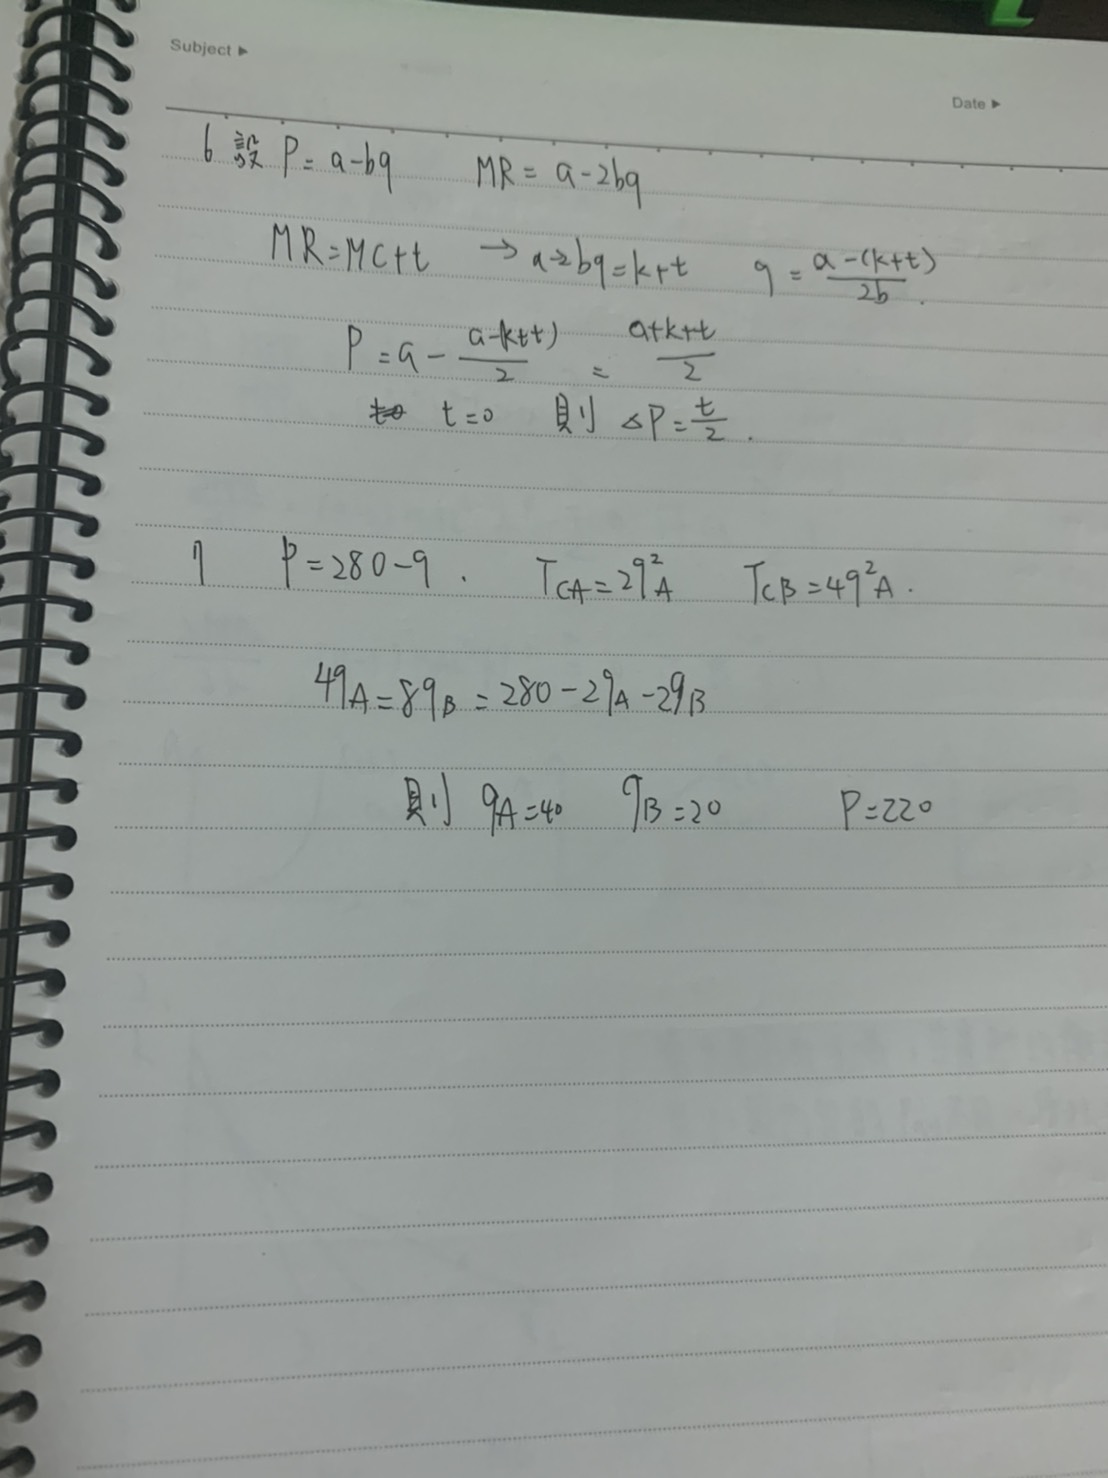 Subject ▶
Date ▶
6 設 P = a-bq MR = a-2bq
MR=MC+t → a-2bq=k+t q = \frac{a-(k+t)}{2b}.
P = a - \frac{a-(k+t)}{2} = \frac{a+k+t}{2}
t=0 則 △P = \frac{t}{2}.
7 P=280-q. TCA=2q²A TCB=4q²A.
4qA=8qB=280-2qA-2qB
則 qA=40 qB=20 P=220